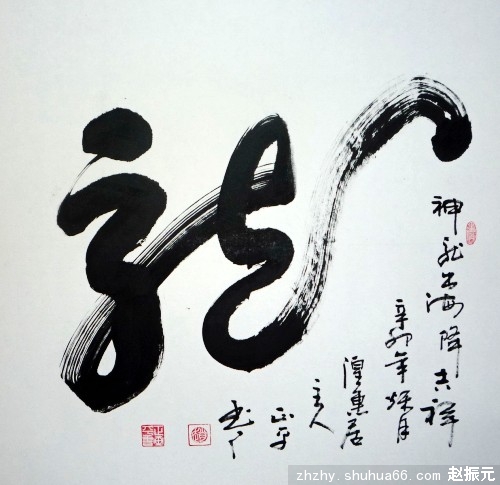 龍
神龙出海降吉祥
辛卯年秋月
惠居
主人
正平
书
zhzhy.shuhua66.com 赵振元